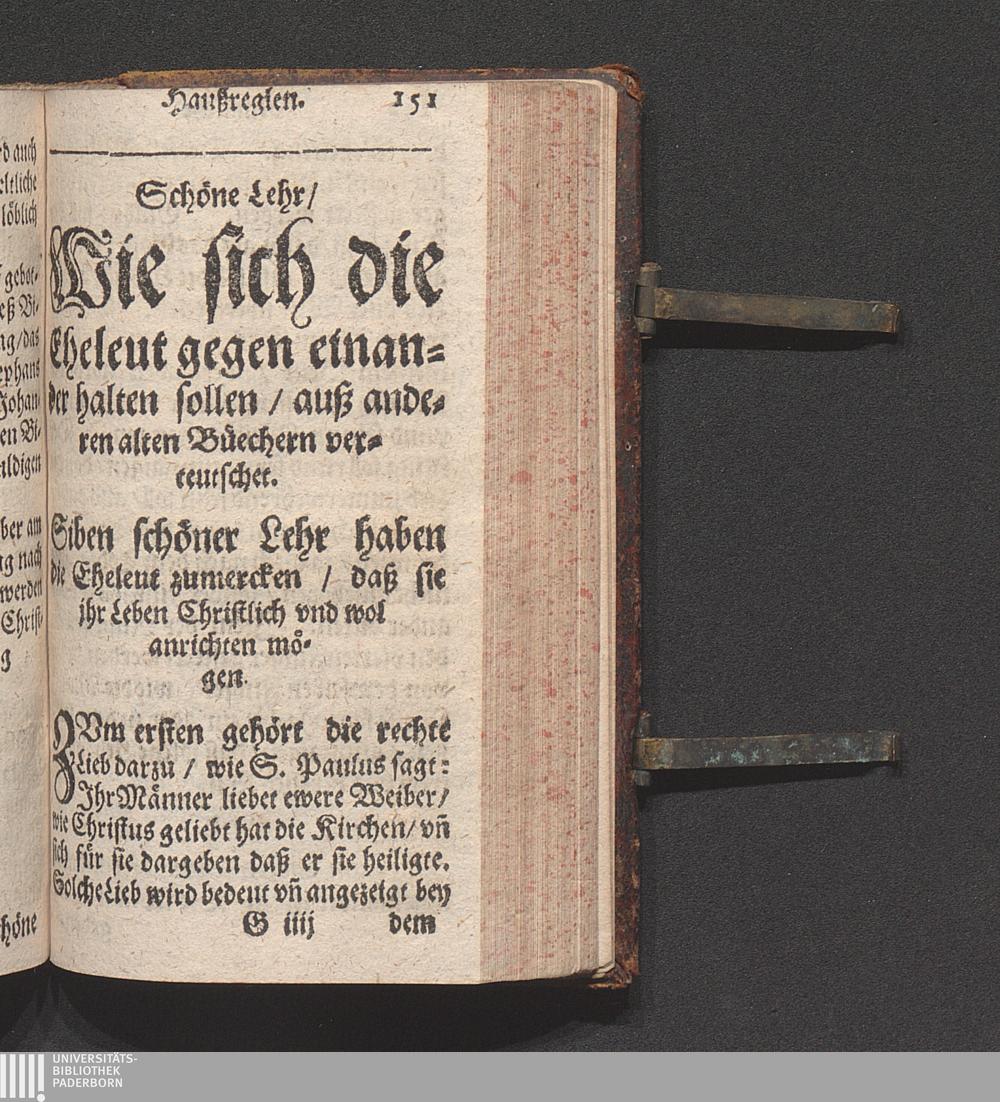 Haußreglen. 151
Schöne Lehr/
Wie sich die
Eheleut gegen einan-
der halten sollen / auß ande-
ren alten Büechern ver-
teutschet.
Siben schöner Lehr haben
die Eheleut zumercken / daß sie
jhr Leben Christlich vnd wol
anrichten mö-
gen.
ZVm ersten gehört die rechte
Lieb darzu / wie S. Paulus sagt:
Jhr Männer liebet ewere Weiber/
wie Christus geliebt hat die Kirchen/ vñ
sich für sie dargeben daß er sie heiligte.
Solche Lieb wird bedeut vñ angezeigt bey
G iiij dem
UNIVERSITÄTS-
BIBLIOTHEK
PADERBORN